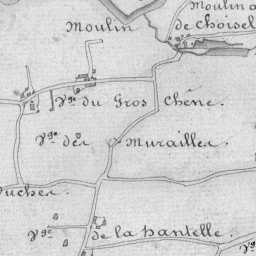 Moulin
Moulin
de Choisel
Vge du Gros Chêne.
Vge des Murailles
Vge de la hantelle.